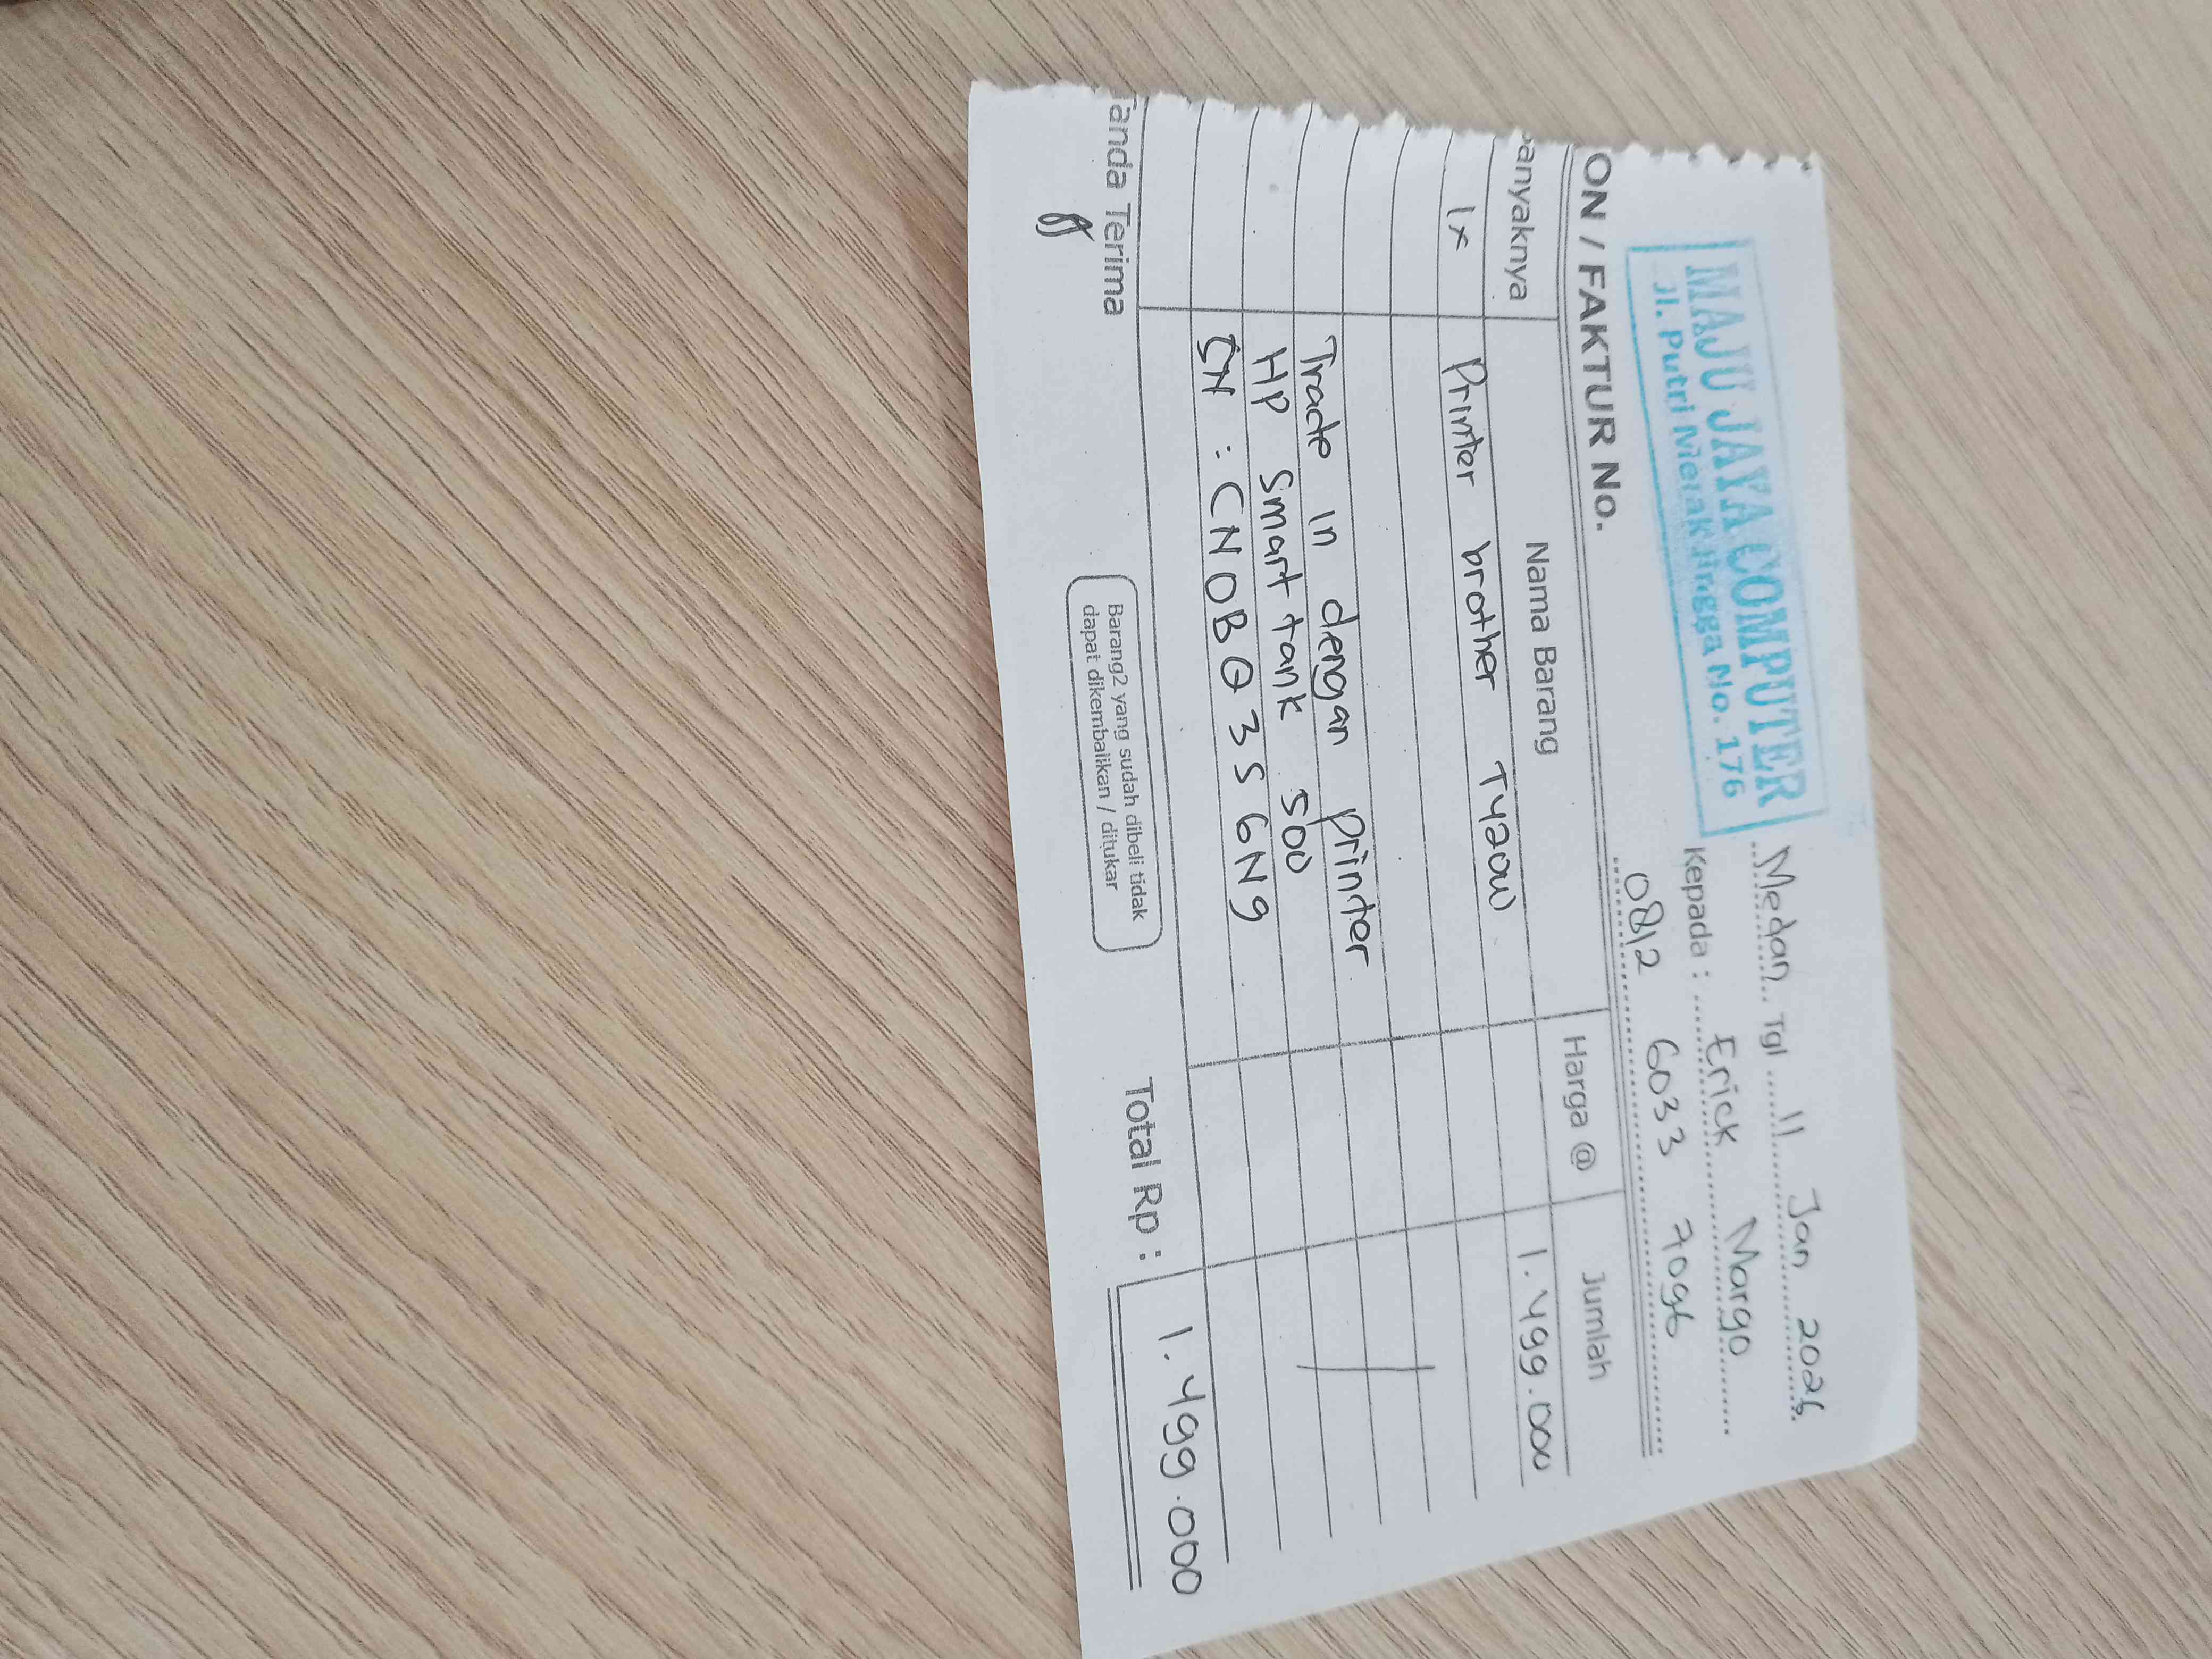 MAJU JAYA COMPUTER
Jl. Putri Merak Jingga No. 176
Medan, Tgl 11 Jan 2026
Kepada : Erick Margo
0812 6033 7096
ON / FAKTUR No.
anyaknya Nama Barang Harga @ Jumlah
1x Printer brother T420W 1.499.000
Trade in dengan printer
HP Smart tank 500
SN : CN0BQ356N9
Tanda Terima
Barang2 yang sudah dibeli tidak
dapat dikembalikan / ditukar
Total Rp : 1.499.000